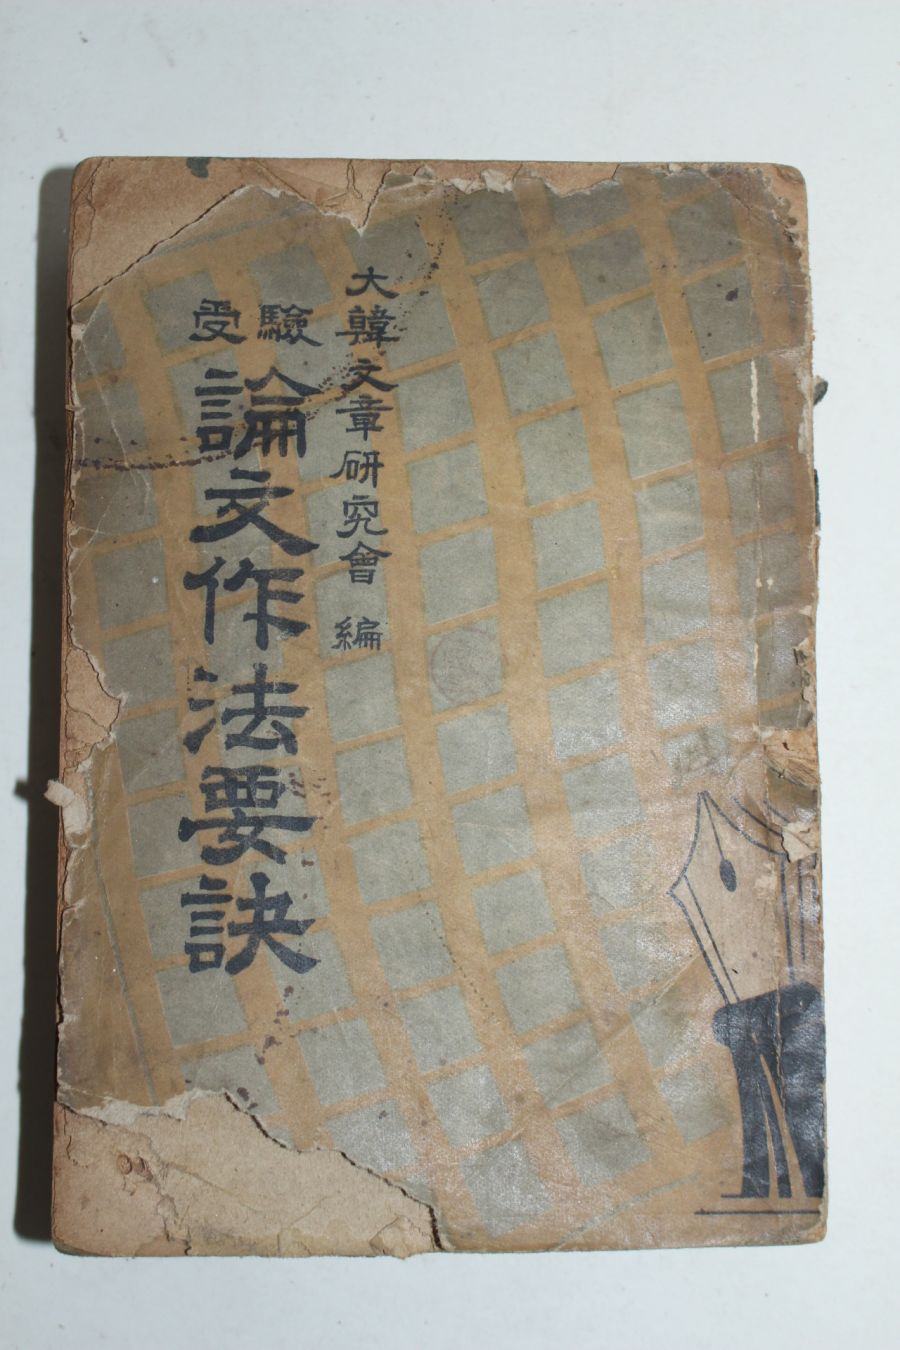 大韓文章研究會 編
受驗
論文作法要訣